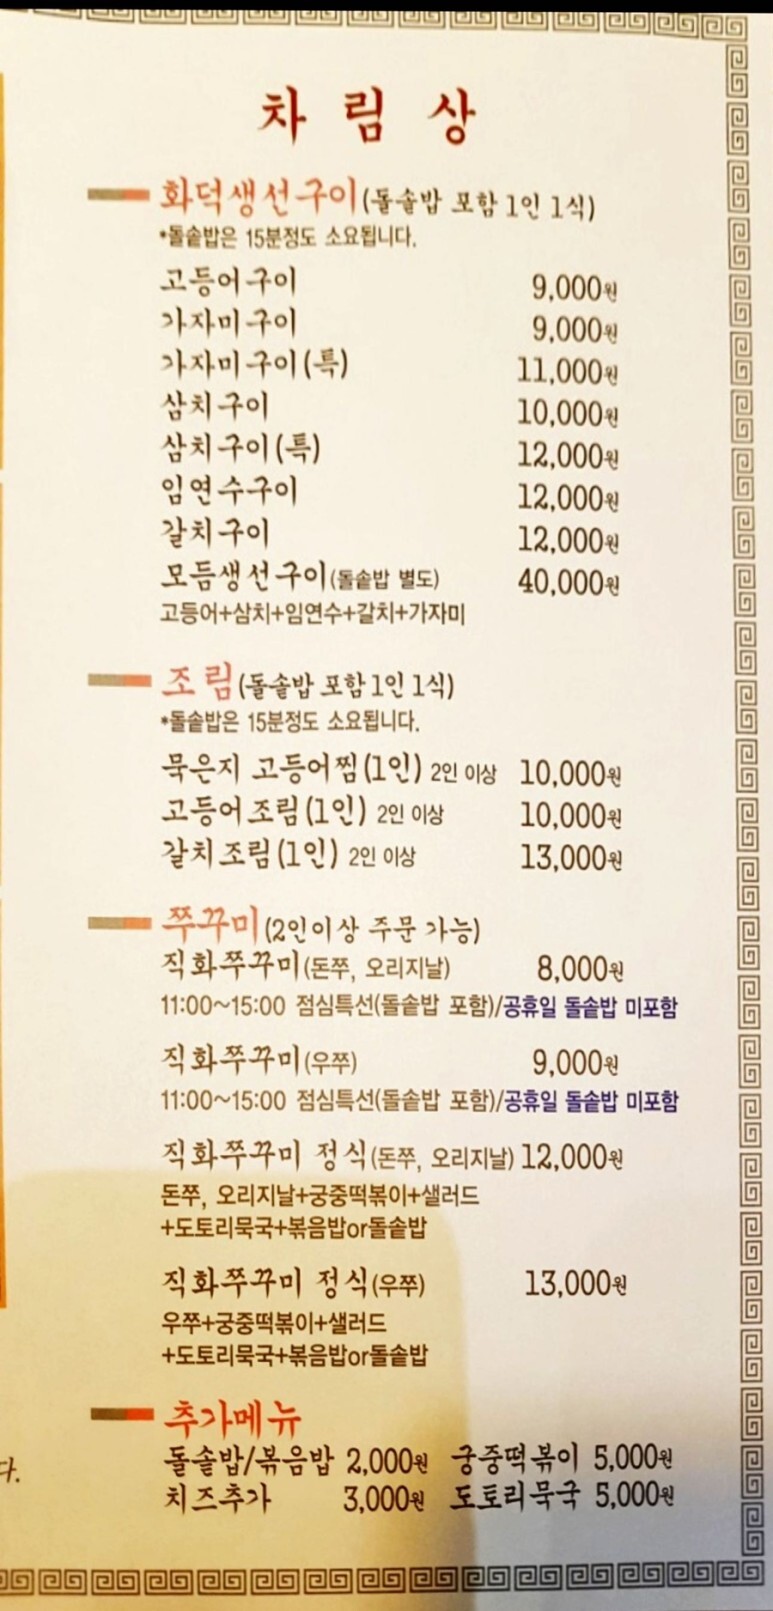 차림상
화덕생선구이(돌솥밥 포함 1인 1식)
*돌솥밥은 15분정도 소요됩니다.
고등어구이 9,000원
가자미구이 9,000원
가자미구이(특) 11,000원
삼치구이 10,000원
삼치구이(특) 12,000원
임연수구이 12,000원
갈치구이 12,000원
모듬생선구이(돌솥밥 별도) 40,000원
고등어+삼치+임연수+갈치+가자미
조림(돌솥밥 포함 1인 1식)
*돌솥밥은 15분정도 소요됩니다.
묵은지 고등어찜(1인) 2인 이상 10,000원
고등어조림(1인) 2인 이상 10,000원
갈치조림(1인) 2인 이상 13,000원
쭈꾸미(2인이상 주문 가능)
직화쭈꾸미(돈쭈, 오리지날) 8,000원
11:00~15:00 점심특선(돌솥밥 포함)/공휴일 돌솥밥 미포함
직화쭈꾸미(우쭈) 9,000원
11:00~15:00 점심특선(돌솥밥 포함)/공휴일 돌솥밥 미포함
직화쭈꾸미 정식(돈쭈, 오리지날) 12,000원
돈쭈, 오리지날+궁중떡볶이+샐러드
+도토리묵국+볶음밥or돌솥밥
직화쭈꾸미 정식(우쭈) 13,000원
우쭈+궁중떡볶이+샐러드
+도토리묵국+볶음밥or돌솥밥
추가메뉴
돌솥밥/볶음밥 2,000원 궁중떡볶이 5,000원
치즈추가 3,000원 도토리묵국 5,000원
다.